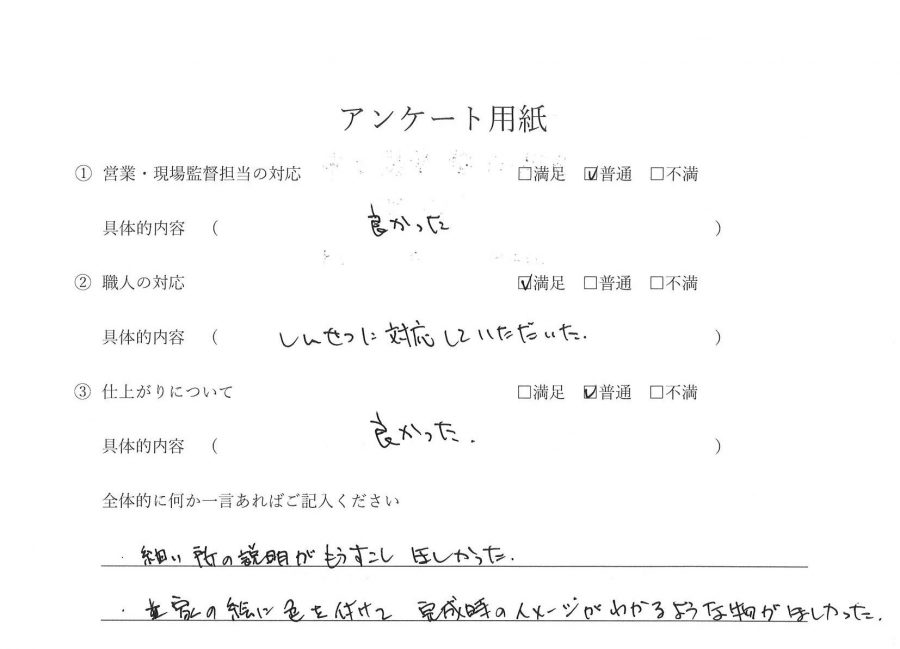 アンケート用紙
① 営業・現場監督担当の対応 □満足 ☑普通 □不満
具体的内容 ( 良かった )
② 職人の対応 ☑満足 □普通 □不満
具体的内容 ( しんせつに対応していただいた. )
③ 仕上がりについて □満足 ☑普通 □不満
具体的内容 ( 良かった. )
全体的に何か一言あればご記入ください
・細い所の説明がもうすこしほしかった.
・家の絵に色を付けて 完成時のイメージがわかるような物がほしかった.